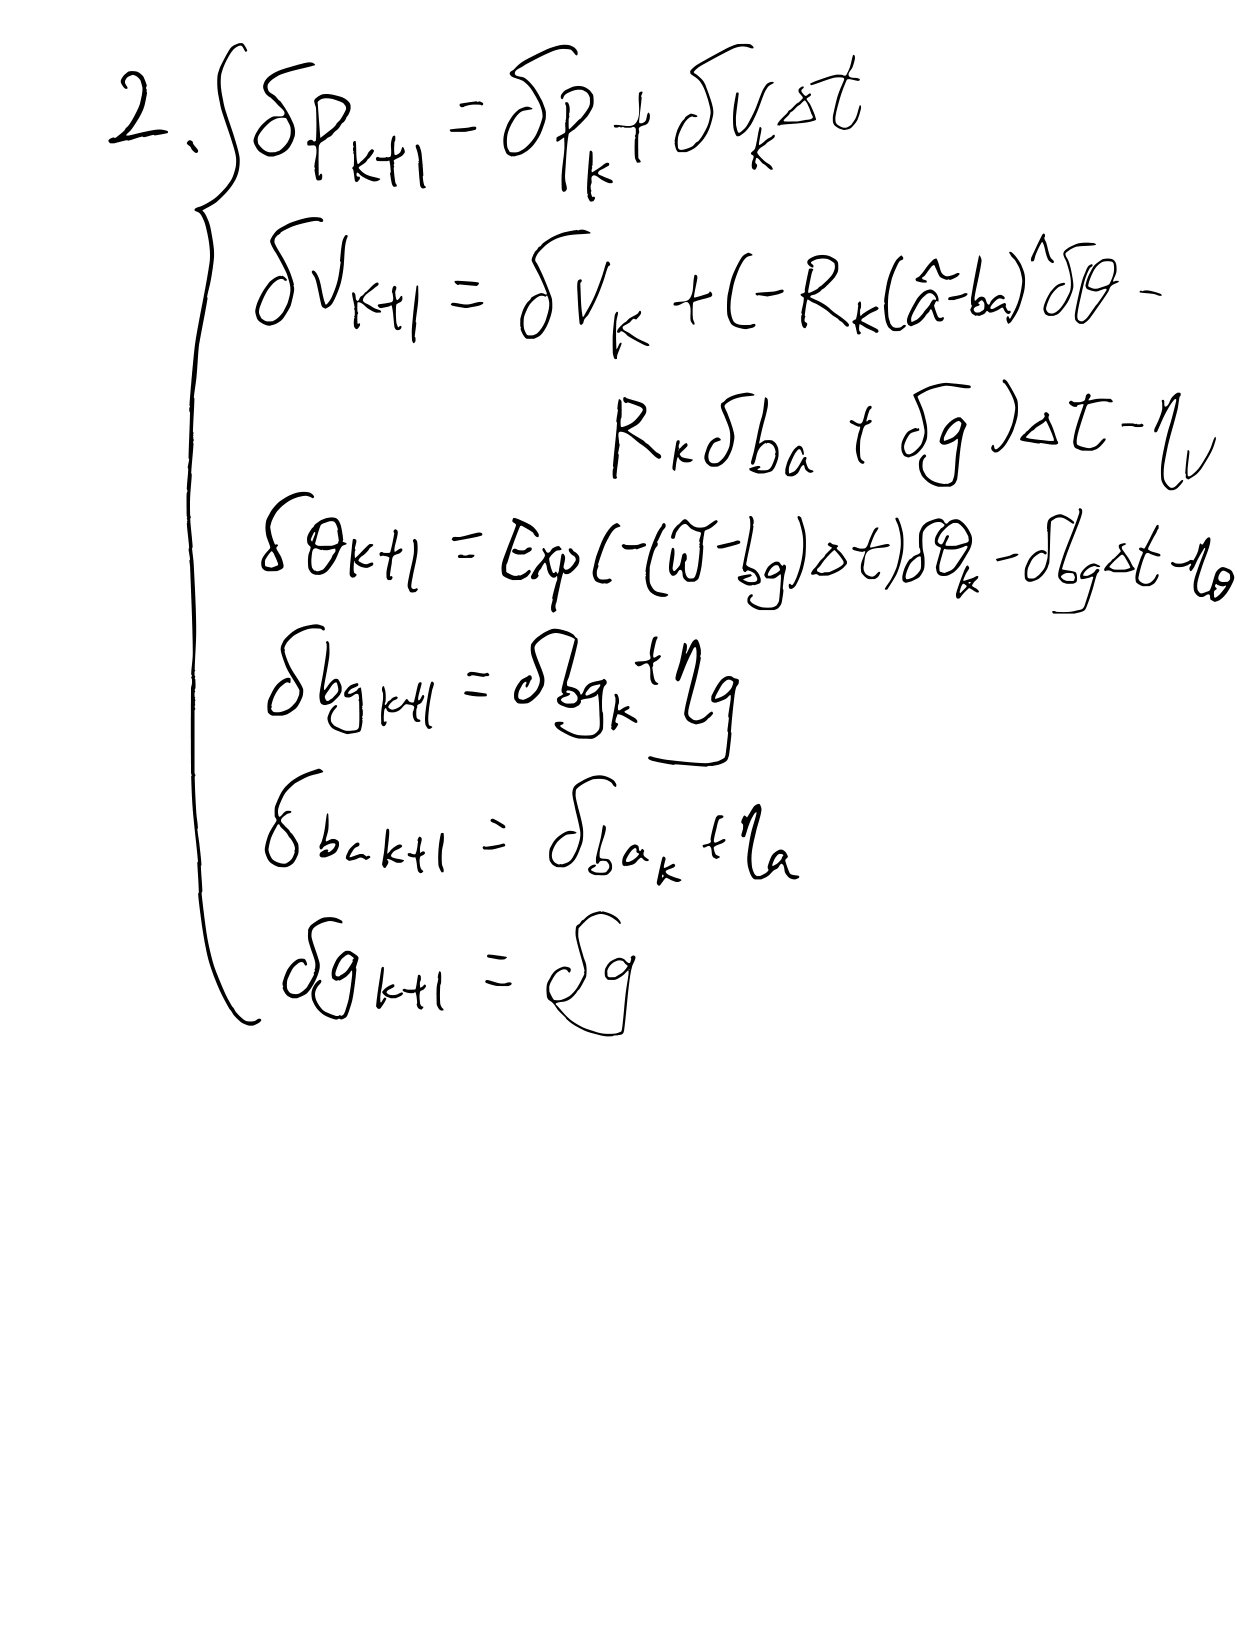 2. { δp_{k+1} = δp_k + δv_k Δt
δv_{k+1} = δv_k + (-R_k(ã-ba)^∧ δθ -
R_k δba + δg)Δt - η_v
δθ_{k+1} = Exp(-(ω̃-bg)Δt)δθ_k - δbgΔt - η_θ
δbg_{k+1} = δbg_k + η_g
δba_{k+1} = δba_k + η_a
δg_{k+1} = δg